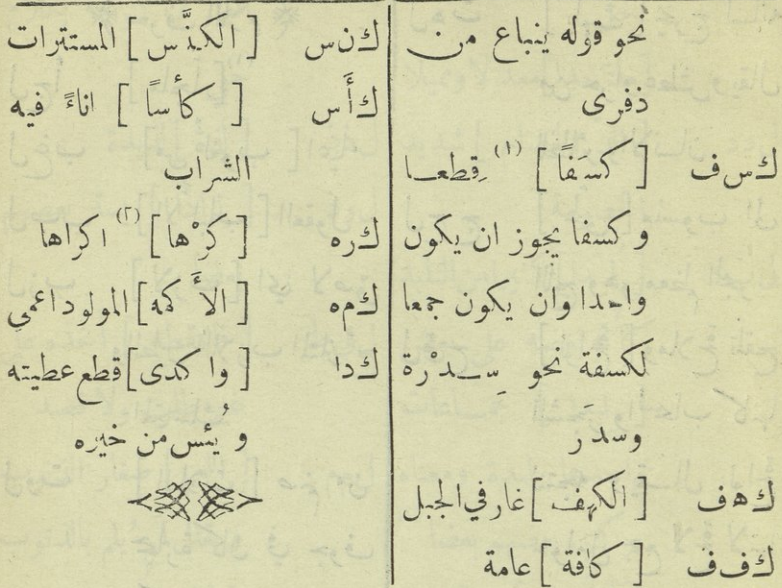 نحو قوله ينباع من
ذفرى
ك س ف [ كسَفاً ] (١) قِطعا
وكسفا يجوز ان يكون
واحدا وان يكون جمعا
لكسفة نحو سِدْرة
وسدَر
ك ه ف [ الكهف ] غار في الجبل
ك ف ف [ كافة ] عامة
ك ن س [ الكنَّس ] المستترات
ك أَ س [ كأساً ] اناءً فيه
الشراب
ك ر ه [ كَرْها ] (٢) اكراها
ك م ه [ الأَكمه ] المولود اعمي
ك د ا [ واكدى ] قطع عطيته
ويُئس من خيره